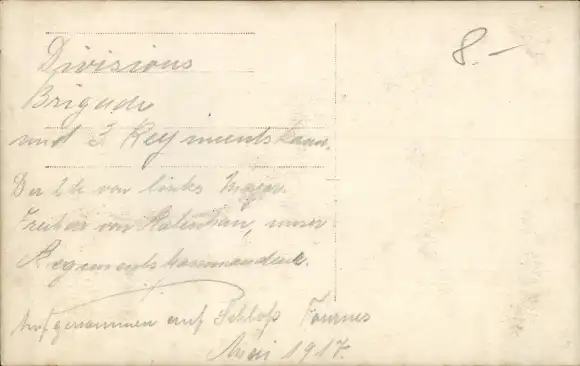 8.-
Divisions
Brigade
und 3 Regimentskom.
Der 2te von links Major
Freiherr von, unser
Regimentskommandeur.
Aufgenommen auf Schloß Fournes
Mai 1917.